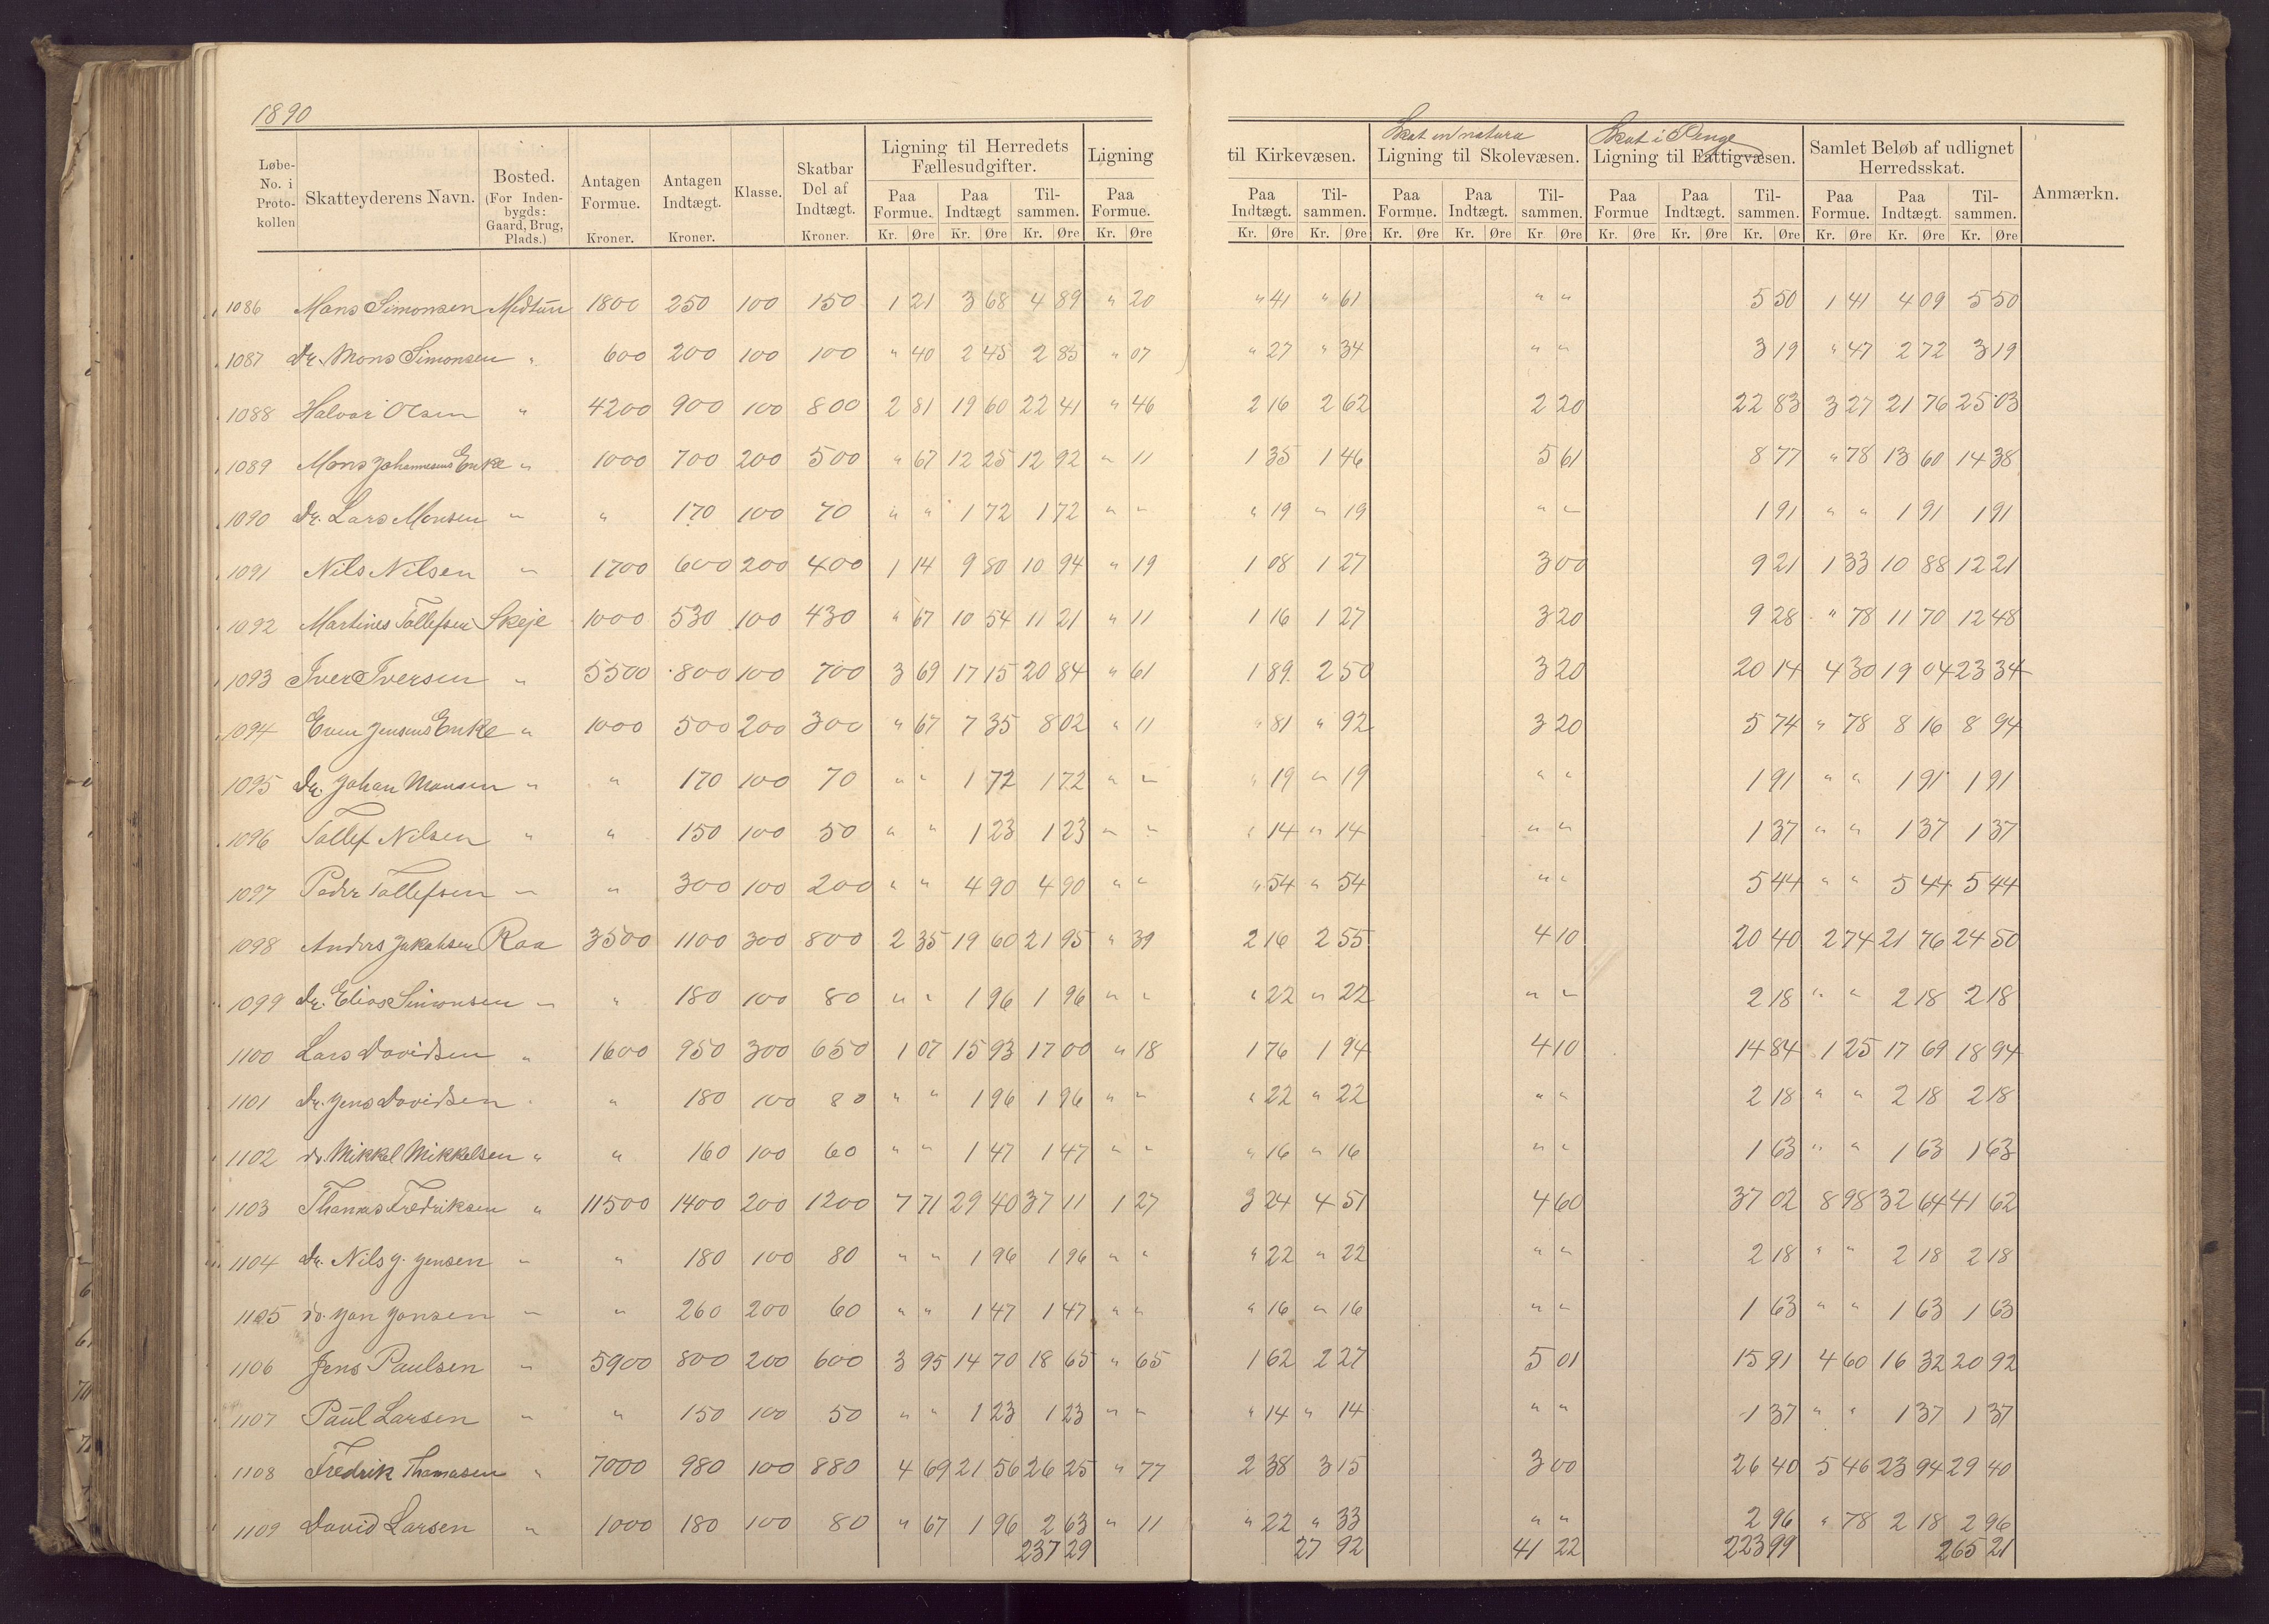 1890
Løbe-No. i Proto-kollen | Skatteyderens Navn. | Bosted. (For Inden-bygds: Gaard, Brug, Plads.) | Antagen Formue. Kroner. | Antagen Indtægt. Kroner. | Klasse. | Skatbar Del af Indtægt. Kroner. | Ligning til Herredets Fællesudgifter. Paa Formue. Kr. Øre | Paa Indtægt Kr. Øre | Til-sammen. Kr. Øre | Ligning Paa Formue. Kr. Øre | til Kirkevæsen. Paa Indtægt. Kr. Øre | Til-sammen. Kr. Øre | Skat in natura Ligning til Skolevæsen. Paa Formue. Kr. Øre | Paa Indtægt. Kr. Øre | Til-sammen. Kr Øre | Skat i Penge Ligning til Fattigvæsen. Paa Formue Kr. Øre | Paa Indtægt. Kr. Øre | Til-sammen. Kr. Øre | Samlet Beløb af udlignet Herredsskat. Paa Formue. Kr. Øre | Paa Indtægt. Kr. Øre | Til-sammen. Kr. Øre | Anmærkn.
1086 Mons Simonsen Midtun 1800 250 100 150 1 21 3 68 4 89 " 20 " 41 " 61 " " 5 50 1 41 4 09 5 50
1087 Dr. Mons Simonsen " 600 200 100 100 " 40 2 45 2 85 " 07 " 27 " 34 " " 3 19 " 47 2 72 3 19
1088 Halvor Olsen " 4200 900 100 800 2 81 19 60 22 41 " 46 2 16 2 62 2 20 22 83 3 27 21 76 25 03
1089 Mons Johannesens Enke " 1000 700 200 500 " 67 12 25 12 92 " 11 1 35 1 46 5 61 8 77 " 78 13 60 14 38
1090 Dr. Lars Monsen " " 170 100 70 " " 1 72 1 72 " " " 19 " 19 " " 1 91 " " 1 91 1 91
1091 Nils Nilsen " 1700 600 200 400 1 14 9 80 10 94 " 19 1 08 1 27 3 00 9 21 1 33 10 88 12 21
1092 Martines Tollefsen Skeje 1000 530 100 430 " 67 10 54 11 21 " 11 1 16 1 27 3 20 9 28 " 78 11 70 12 48
1093 Iver Iversen " 5500 800 100 700 3 69 17 15 20 84 " 61 1 89 2 50 3 20 20 14 4 30 19 04 23 34
1094 Even Jensens Enke " 1000 500 200 300 " 67 7 35 8 02 " 11 " 81 " 92 3 20 5 74 " 78 8 16 8 94
1095 Dr. Johan Monsen " " 170 100 70 " " 1 72 1 72 " " " 19 " 19 " " 1 91 " " 1 91 1 91
1096 Tollef Nilsen " " 150 100 50 " " 1 23 1 23 " " " 14 " 14 " " 1 37 " " 1 37 1 37
1097 Peder Tollefsen " " 300 100 200 " " 4 90 4 90 " " " 54 " 54 " " 5 44 " " 5 44 5 44
1098 Anders Jakobsen Raa 3500 1100 300 800 2 35 19 60 21 95 " 39 2 16 2 55 4 10 20 40 2 74 21 76 24 50
1099 Dr. Elias Simonsen " " 180 100 80 " " 1 96 1 96 " " " 22 " 22 " " 2 18 " " 2 18 2 18
1100 Lars Davidsen " 1600 950 300 650 1 07 15 93 17 00 " 18 1 76 1 94 4 10 14 84 1 25 17 69 18 94
1101 Dr. Jens Davidsen " " 180 100 80 " " 1 96 1 96 " " " 22 " 22 " " 2 18 " " 2 18 2 18
1102 do. Mikkel Mikkelsen " " 160 100 60 " " 1 47 1 47 " " " 16 " 16 " " 1 63 " " 1 63 1 63
1103 Thomas Fredriksen " 11500 1400 200 1200 7 71 29 40 37 11 1 27 3 24 4 51 4 60 37 02 8 98 32 64 41 62
1104 Dr. Nils J. Jensen " " 180 100 80 " " 1 96 1 96 " " " 22 " 22 " " 2 18 " " 2 18 2 18
1105 do. Jan Jansen " " 260 200 60 " " 1 47 1 47 " " " 16 " 16 " " 1 63 " " 1 63 1 63
1106 Jens Paulsen " 5900 800 200 600 3 95 14 70 18 65 " 65 1 62 2 27 5 01 15 91 4 60 16 32 20 92
1107 Paul Larsen " " 150 100 50 " " 1 23 1 23 " " " 14 " 14 " " 1 37 " " 1 37 1 37
1108 Fredrik Thomasen " 7000 980 100 880 4 69 21 56 26 25 " 77 2 38 3 15 3 00 26 40 5 46 23 94 29 40
1109 David Larsen " 1000 180 100 80 " 67 1 96 2 63 " 11 " 22 " 33 " " 2 96 " 78 2 18 2 96
237 29 27 92 41 22 223 99 265 21